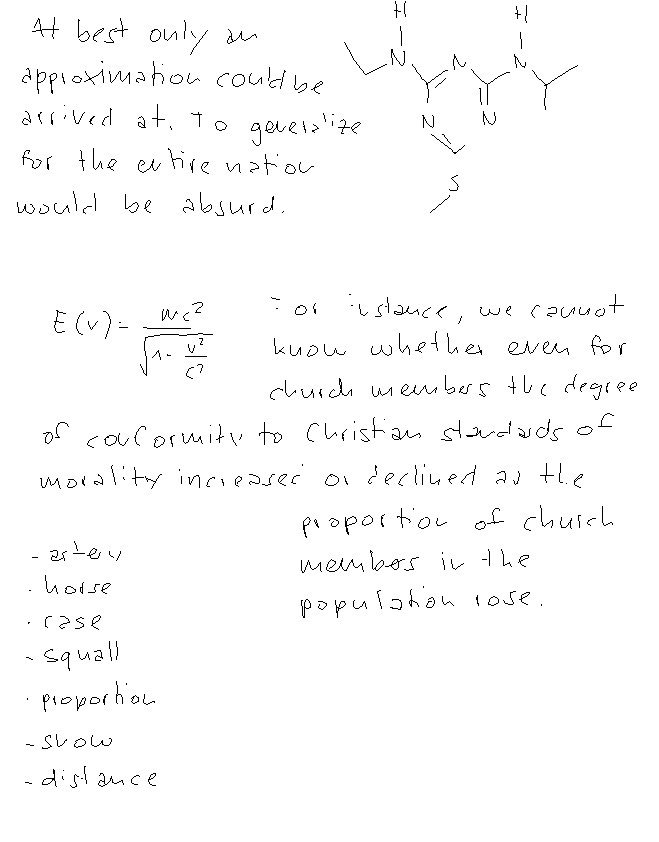 At best only an
approximation could be
arrived at. To generalize
for the entire nation
would be absurd.
H H
N N N
N N
S
E(v) = mc² / √(1 - v²/c²)
For instance, we cannot
know whether even for
church members the degree
of conformity to Christian standards of
morality increased or declined as the
proportion of church
members in the
population rose.
- artery
· horse
· case
- squall
· proportion
- snow
- distance